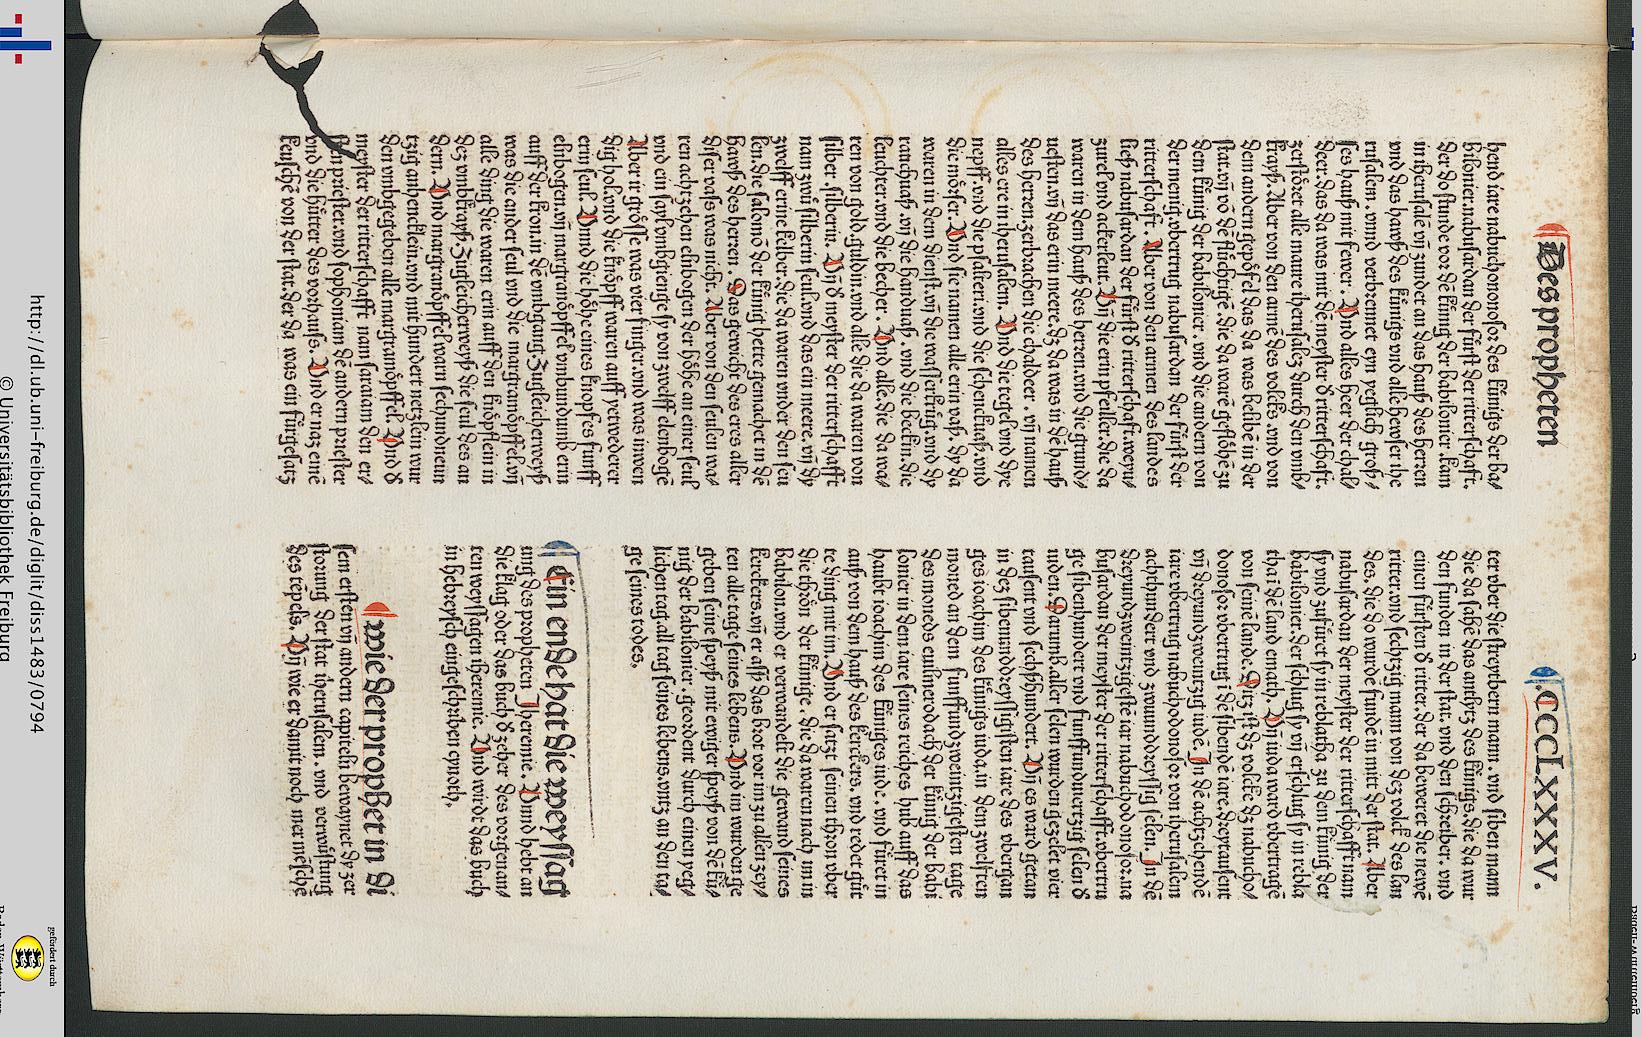 Des propheten
.CCCLXXXV.
hend iare nabuchonosor des künigs der ba/
bilonier. nabusardan der fürst der ritterschaft.
der do stunde vor dē künig der babilonier. kam
in iherusalē vñ zunder an das hauß des herren
vnd das hawß des künigs vnd alle hewser ihe
rusalem. vnnd verbrennet eyn yetlich groß/
ses hauß mit fewer. Vnd alles heer der chal/
deer. das da was mit dē meyster d̕ ritterschaft.
zerstöret alle maure iherusalez durch den vmb/
krayß. Aber von den armē des volcks. vnd von
dem andern gepöfel das da was belibē in der
stat. vñ vō dē flüchtigē. die da warē geflohē zu
dem künig der babiloner. vnd die andern von
der menig. vbertrug nabusardan der fürst der
ritterschaft. Aber von den armen des landes
ließ nabusardan der fürst d̕ ritterschaft. weyn/
zurel vnd ackerleut. Vñ die erin pfeiler. die da
waren in dem hauß des herren. vnd die grund/
uesten. vñ das erin meere. dz da was in dē hauß
des herren. zerbrachen die chaldeer. vñ namen
alles ere in iherusalem. Vnd die tegel vnd dye
nepff. vnd die psalteri. vnd die schenckuaß. vnd
die mörser. Vnd sie namen alle erin vaß. dy da
waren in dem dienst. vñ die wasserkrüg. vnd dy
rauchuaß. vñ die handuaß. vnd die beckin. die
leuchter. vnd die becher. Vnd alle. die da wa/
ren von gold. guldin. vnd alle die da waren von
silber silberin. Vñ d̕ meyster der ritterschafft
nam zwů silberin seul. vnd das ein meere. vñ dy
zwelff erine kelber. die da waren vnder den seu
len. die salomō der künig hette gemachet in dē
hawß des herren. Das gewicht des eres aller
diser vass was nicht. Aber von den seulen wa/
ren achtzehen elnbogen der höhe an einer seul
vnd ein sayl vmbgienge sy von zwelff elenbogē
Aber ir grösse was vier finger. vnd was innen
dig hol. vnd die knöpff waren auff yetwederer
erin seul. Vnnd die höhe eines knopfes funff
elnbogen. vñ margranöpffel vmbundumb erin
auff der kron. in dē vmbgang. Zugleicherweyß
was die ander seul vnd die margramöpffel. vñ
alle ding die waren erin auff den knöpflein in
dez vmbkrayß. Zugleicherweyß die seul des an
dern. Vnd margranöpffel warn sechsundneun
tzig anhencklein. vnd mit hundert netzlein wur
den vmbgegeben alle margramöpffel. Vnd d̕
meyster der ritterschafft nam saraiam den er/
sten priester. vnd sophoniam dē andern priester
vnd die hütter des vorhauß. Vnd er naz einē
keuschē von der stat. der da was ein fürgesatz
ter vber die streytbern mann. vnd siben mann
die da sahē das antlytz des künigs. die da wur
den funden in der stat. vnd den schreiber. vnd
einen fürsten d̕ ritter. der da beweret die newē
ritter. vnd sechtzig mann von dez volck des lan
des. die do wurdē fundē in mitt der stat. Aber
nabusardan der meyster der ritterschafft nam
sy vnd zufüret sy in reblatha zu dem künig der
babilonier. der schlug sy vñ erschlug sy in rebla
tha i dē land emath. Vñ iuda ward vbertragē
von seinē lande. Ditz ist dz volck dz nabucho/
donosor vbertrug i dē sibendē iare. dreytausent
vñ dreyundzweintzig iudē. In dē achtzehendē
iare vbertrug nabuchodonosor von iherusalem
achthundert vnd zwaiunddreyssig selen. In dē
dreyundzweintzigiste iar nabuchodonosor. na
busardan der meyster der ritterschafft. vbertru
ge sibenhundert vnd funffundviertzig selen d̕
iuden. Darumb aller selen wurden gezelet vier
tausent vnd sechßhundert. Vñ es ward getan
in dez sibenunddreyssigisten iare des vbergan
ges ioachim des künigs iuda. in dem zwelften
moned an dem funffundzweintzigisten tage
des moneds euilmerodach der künig der babi
lonier in dem iare seines reiches hub auff das
haubt ioachim des küniges iude. vnd füret in
auß von dem hauß des kerckers. vnd redet gůt
te ding mit im. Vnd er satzt seinen thron ober
die thrön der künige. die da waren nach im in
babilon. vnd er verwandelt die gewand seines
kerckers. vñ er aß das brot vor im zu allen zey/
ten alle tage seines lebens. Vnd im wurden ge
geben seine speyß mit ewiger speyß von dē kü/
nig der babilonier. geordent durch einen yeg/
lichen tag. all tag seines lebens. vntz an den ta/
ge seines todes.
Ein ende hat die weyssag
ung des propheten Jheremie. Vnnd hebt an
die klag oder das buch d̕ zeher des vorgenan/
ten weyssagen iheremie. Vnd wirdt das buch
in hebreysch eingeschriben cynoth.
wie der prophet in di
sen ersten vñ andern capiteln beweynet dy zer
störung der stat iherusalem. vnd verwüstung
des tēpels. Vñ wie er damit noch mer mēschē
http://dl.ub.uni-freiburg.de/diglit/diss1483/0794
© Universitätsbibliothek Freiburg
gefördert durch